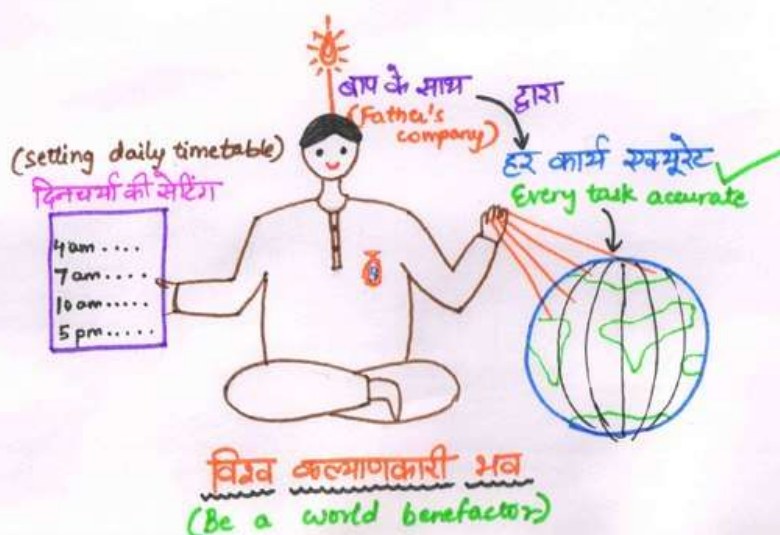 बाप के साथ
(Father's
company)
द्वारा
हर कार्य एक्यूरेट
Every task accurate
(setting daily timetable)
दिनचर्या की सेटिंग
4 am ....
7 am ....
10 am .....
5 pm .....
विश्व कल्याणकारी भव
(Be a world benefactor)